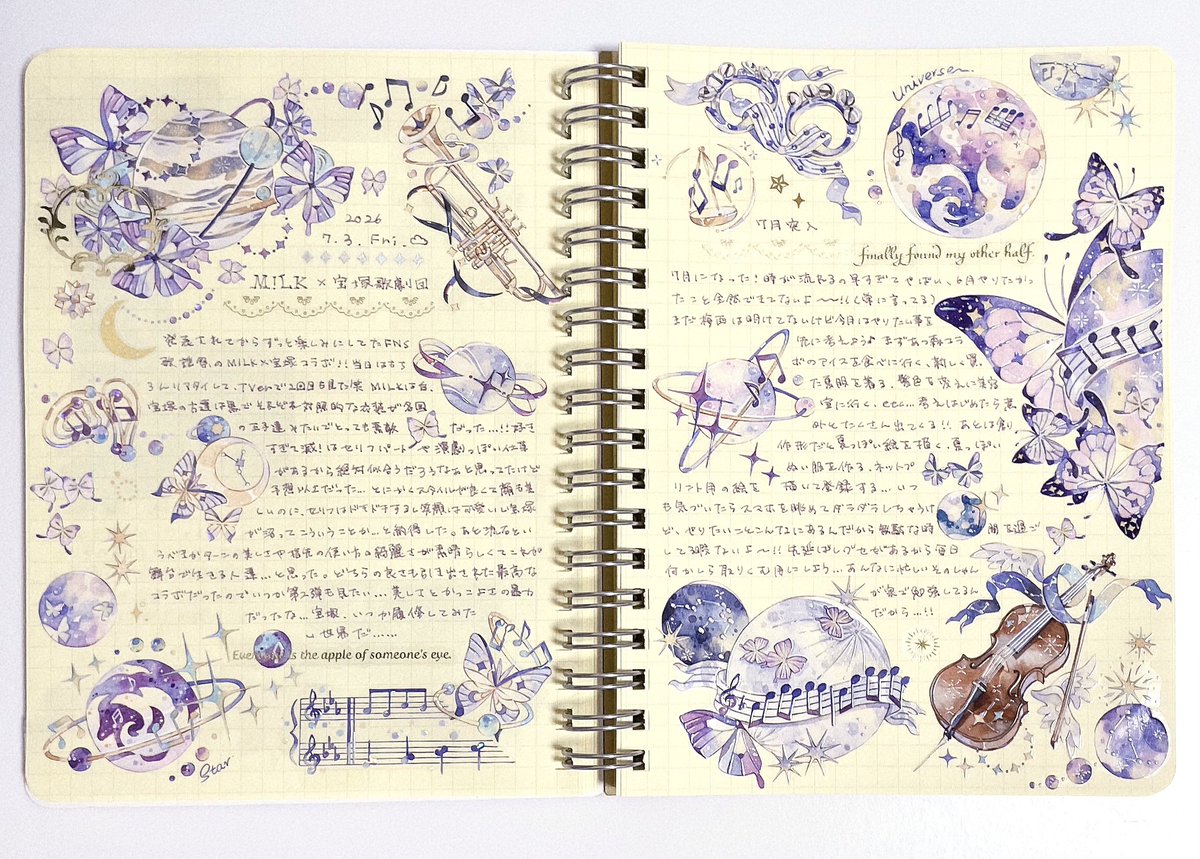 2026
7.3. Fri.
M!LK × 宝塚歌劇団
発表されてからずっと楽しみにしてたFNS
歌謡祭のM!LK×宝塚コラボ!!当日はもち
ろんリアタイして、TVerで2回目も見た笑 M!LKは白、
宝塚の方達は黒でそれぞれ対照的な衣装が各国
の王子達みたいでとっても素敵だった…!!好き
すぎて滅!はセリフパートや演劇っぽい仕草
があるから絶対似合うだろうなぁと思ってたけど
予想以上だった…とにかくスタイルが良くて顔も美
しいのに、セリフはドキドキするし笑顔は可愛いし宝塚
が沼ってこういうことか…と納得した。あと流石とい
うべきかターンの美しさや指先の使い方の綺麗さが素晴らしくてこれが
舞台で生きる人達…と思った。どちらの良さも引き出された最高な
コラボだったのでいつか第2弾も見たい…美しさとかっこよさの暴力
だったな…宝塚、いつか履修してみた
い世界だ……
the apple of someone's eye.
Star
Universe
7月突入
finally found my other half.
7月になった!時が流れるの早すぎてやばい、6月やりたかっ
たこと全然できてないよ〜!!(常に言ってる)
まだ梅雨は明けてないけど今月はやりたい事を
先に考えよう♪ まずあつ森コラ
ボのアイスを食べに行く、新しく買っ
た夏服を着る、髪色を変えに美容
室に行く、etc…考えはじめたら意
外とたくさん出てくる!!あとは創
作形だと夏っぽい絵を描く、夏っぽい
ぬい服を作る、ネットプ
リント用の絵を描いて登録する…いつ
も気づいたらスマホを眺めてダラダラしちゃうけ
ど、やりたいことこんなにあるんだから無駄な時間を過ご
して暇ないよ〜!!先延ばしグセがあるから毎日
何かしら取りくむ月にしよう…あんなに忙しいそのじゃん
が家で勉強してるん
だから…!!